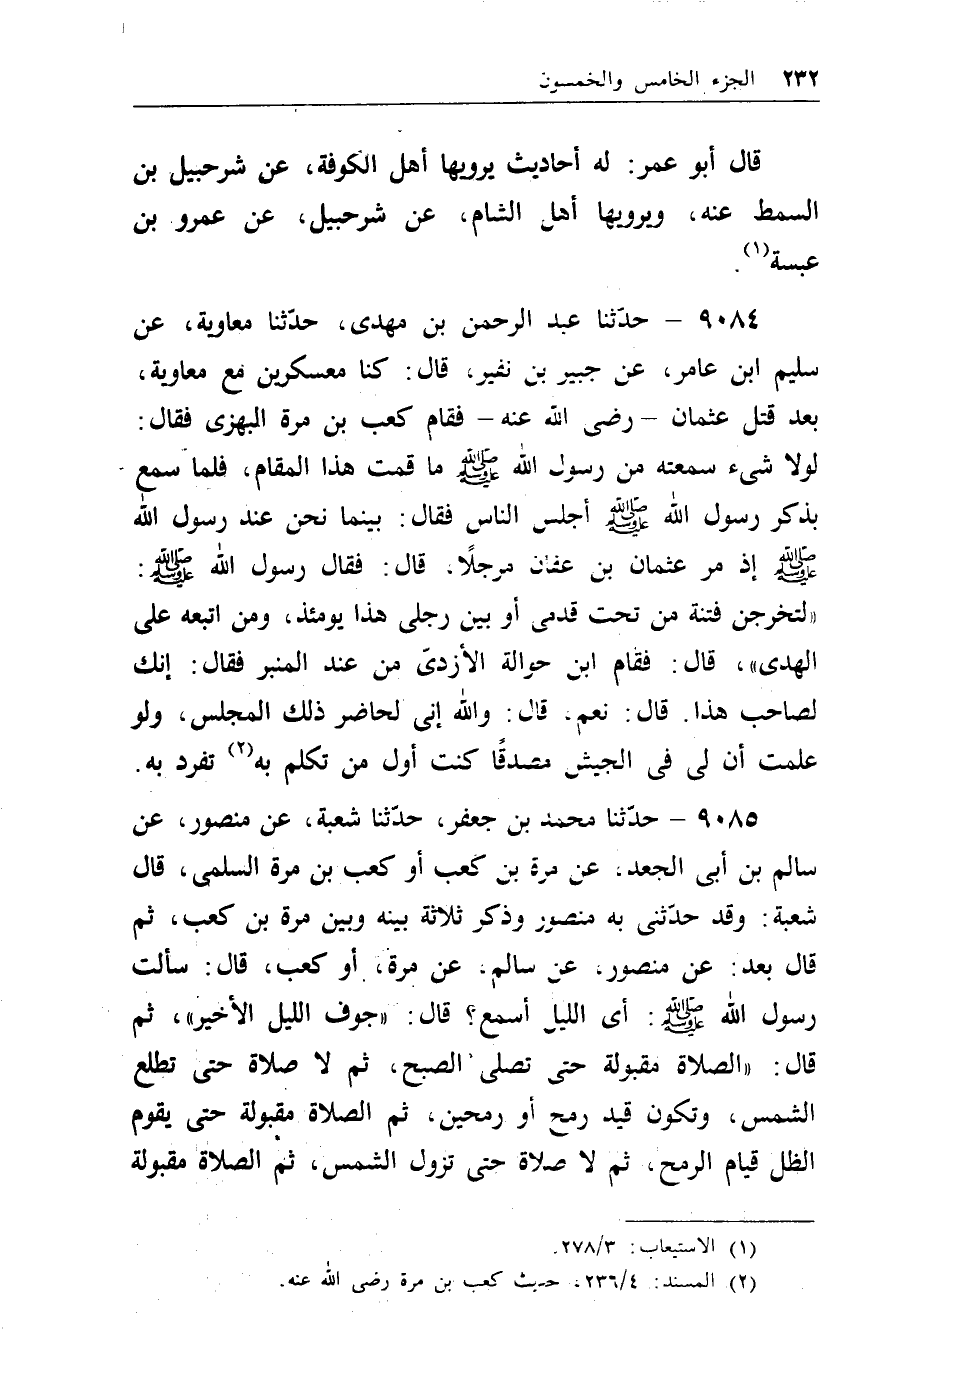 ٢٣٢ الجزء الخامس والخمسون
قال أبو عمر: له أحاديث يرويها أهل الكوفة، عن شرحبيل بن
السمط عنه، ويرويها أهل الشام، عن شرحبيل، عن عمرو بن
عبسة(١).
٩٠٨٤ – حدّثنا عبد الرحمن بن مهدى، حدّثنا معاوية، عن
سليم ابن عامر، عن جبير بن نفير، قال: كنا معسكرين مع معاوية،
بعد قتل عثمان –رضى الله عنه– فقام كعب بن مرة البهزى فقال:
لولا شىء سمعته من رسول الله ﷺ ما قمت هذا المقام، فلما سمع
بذكر رسول الله ﷺ أجلس الناس فقال: بينما نحن عند رسول الله
ﷺ إذ مر عثمان بن عفان مرجلًا، قال: فقال رسول الله ﷺ:
«لتخرجن فتنة من تحت قدمى أو بين رجلى هذا يومئذ، ومن اتبعه على
الهدى»، قال: فقام ابن حوالة الأزدىّ من عند المنبر فقال: إنك
لصاحب هذا. قال: نعم، قال: والله إنى لحاضر ذلك المجلس، ولو
علمت أن لى فى الجيش مصدقًا كنت أول من تكلم به(٢) تفرد به.
٩٠٨٥ – حدّثنا محمد بن جعفر، حدّثنا شعبة، عن منصور، عن
سالم بن أبى الجعد، عن مرة بن كعب أو كعب بن مرة السلمى، قال
شعبة: وقد حدّثنى به منصور وذكر ثلاثة بينه وبين مرة بن كعب، ثم
قال بعد: عن منصور، عن سالم، عن مرة، أو كعب، قال: سألت
رسول الله ﷺ: أى الليل أسمع؟ قال: «جوف الليل الأخير»، ثم
قال: «الصلاة مقبولة حتى تصلى الصبح، ثم لا صلاة حتى تطلع
الشمس، وتكون قيد رمح أو رمحين، ثم الصلاة مقبولة حتى يقوم
الظل قيام الرمح، ثم لا صلاة حتى تزول الشمس، ثم الصلاة مقبولة
(١) الاستيعاب: ٢٧٨/٣.
(٢) المسند: ٢٣٦/٤، حديث كعب بن مرة رضى الله عنه.